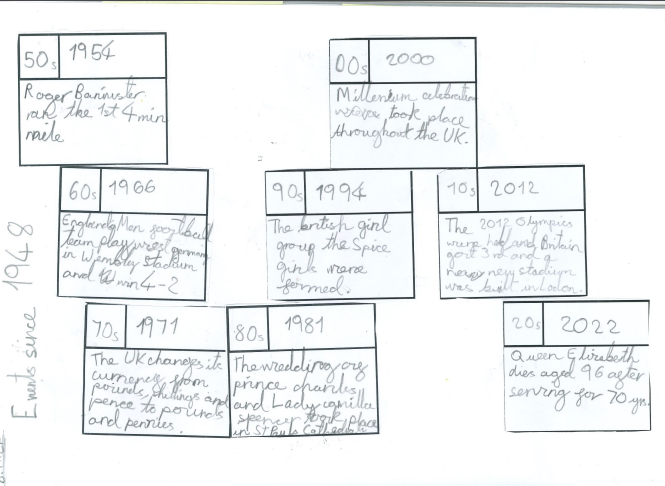 50s 1954
Roger Bannister
ran the 1st 4 min
mile
00s 2000
Millenium celebration
took place
throughout the UK.
60s 1966
Englands Men football
team play west germany
in Wembley Stadium
and win 4-2
90s 1994
The british girl
group the Spice
girls were
formed.
10s 2012
The 2012 Olympics
were held and Britain
got 3rd and a
new stadium
was built in
Events since 1948
70s 1971
The UK changes its
currency from
pounds, shillings and
pence to pounds
and pennies.
80s 1981
The wedding of
prince charles
and Lady
spencer took place
in St Pauls Cathedral
20s 2022
Queen Elizabeth
dies aged 96 after
serving for 70 yrs.